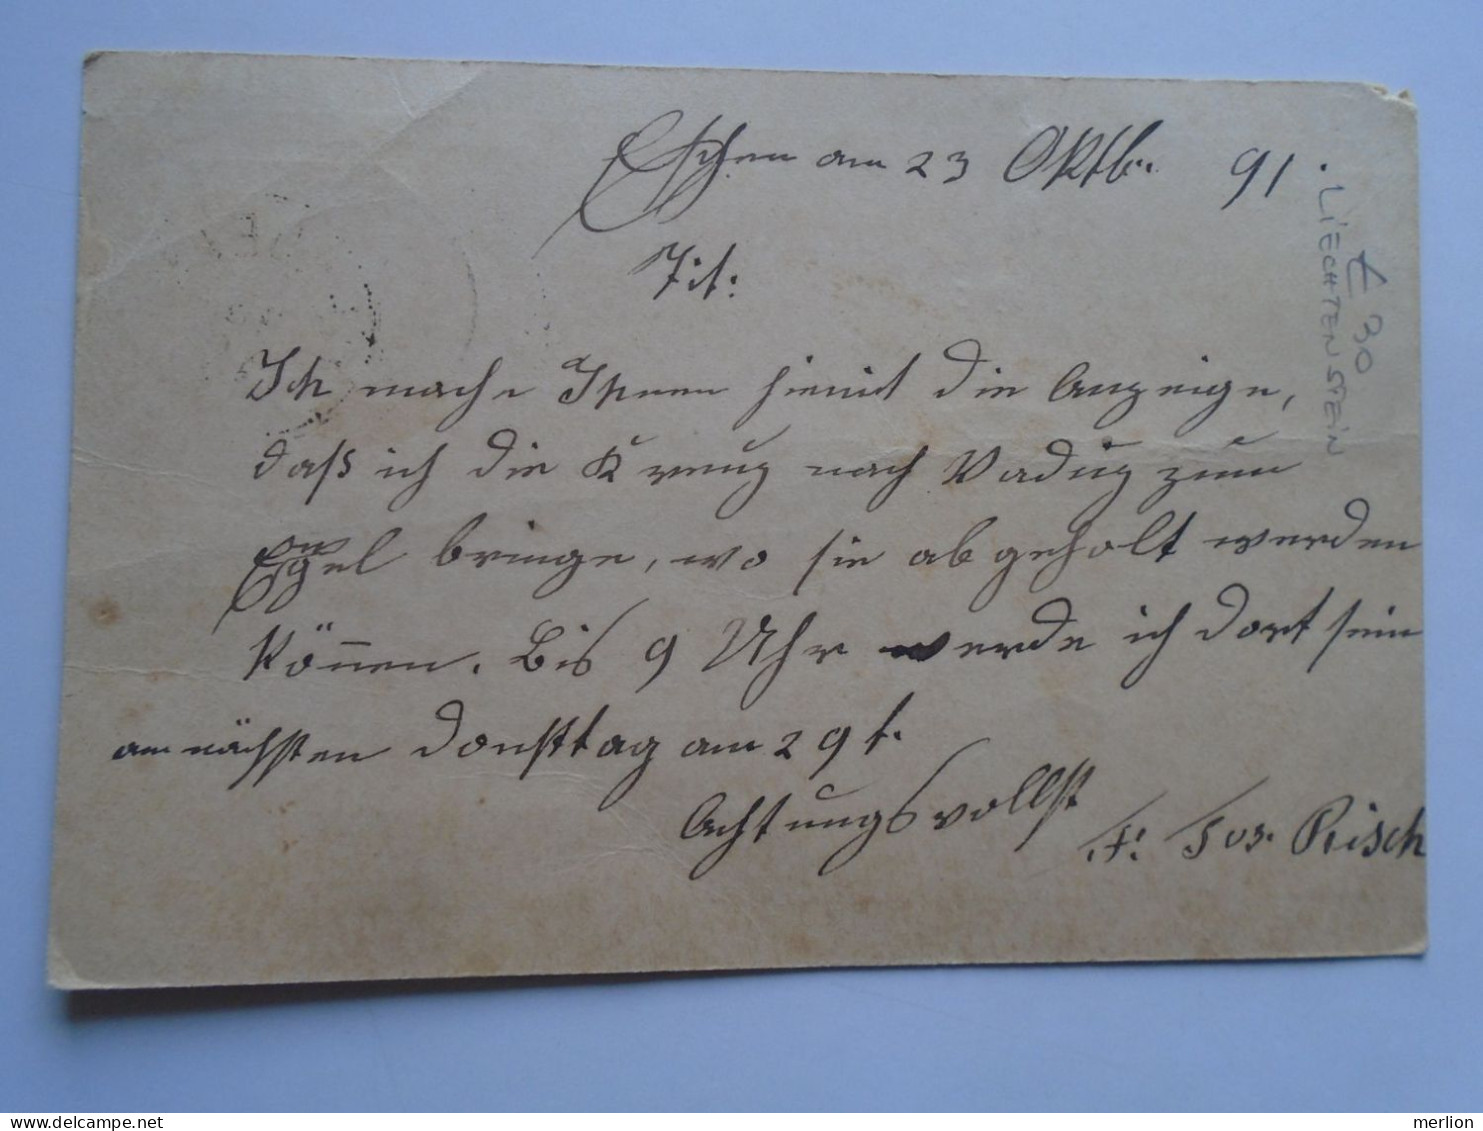 Eschen am 23 Oktb. 91.
Tit:
Ich mache Ihnen hiemit die Anzeige,
daß ich die Kreuz nach Vaduz zum
Engel bringe, wo sie abgeholt werden
können. Bis 9 Uhr werde ich dort sein
am nächsten Donsttag am 29t.
Achtungsvollst
F. Jos. Risch
€ 30
LIECHTENSTEIN
merlion